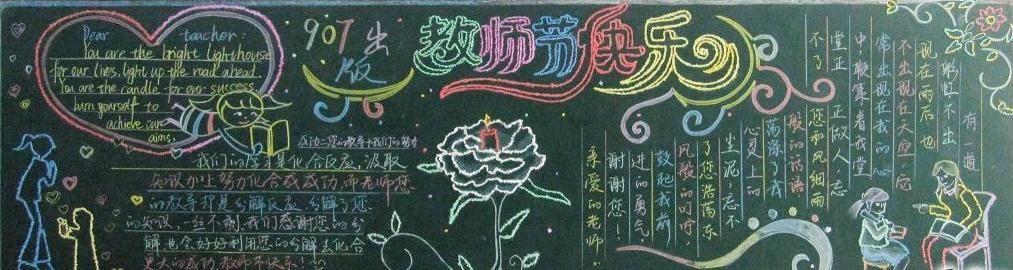 Dear teacher
You are the bright lighthouse
for our lives, light up the road ahead.
You are the candle for our success
burn yourself to
achieve our
aims.
907出
版
教师节快乐
成功=您的教导+我们的努力
我们的学习是化合反应,汲取
知识加上努力化合成成功,而老师您
的教导打是分解反应,分解了您
的知识,一丝不剩,我们感谢您的分
解,也会好好利用您的分解去化合
更大的成功,教师节快乐!
有一道
彩虹不出
现在雨后,也
不出现在天空,它
常出现在我的心
中,鞭策着我堂
堂正正做人,忘
不了您和风细雨
般的话语
荡涤了我
心灵上的
尘泥,忘不
了您浩荡东
风般的叮咛,
鼓起我前
进的勇气
谢谢您!
亲爱的老师